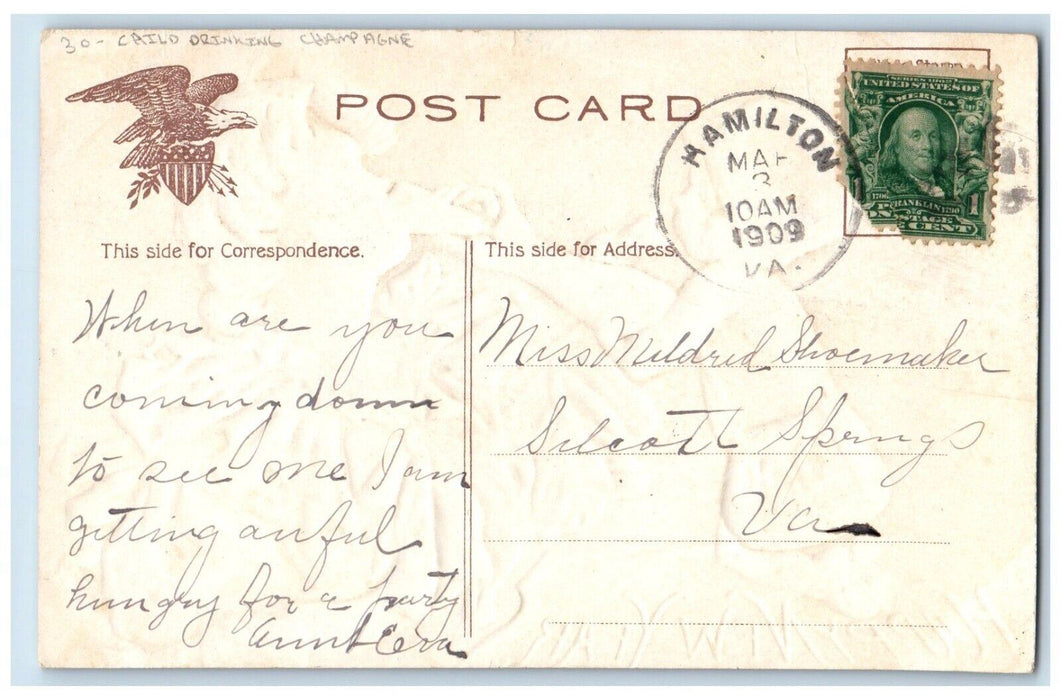 30- CHILD DRINKING CHAMPAGNE
POST CARD
HAMILTON
MAR
3
10AM
1909
VA.
SERIES 1902
UNITED STATES OF
AMERICA
1706 FRANKLIN 1790
1
POSTAGE
CENT
This side for Correspondence.
This side for Address.
When are you
coming down
to see me I am
getting awful
hungry for a party
Aunt Era
Miss Mildred Shoemaker
Silcott Springs
Va